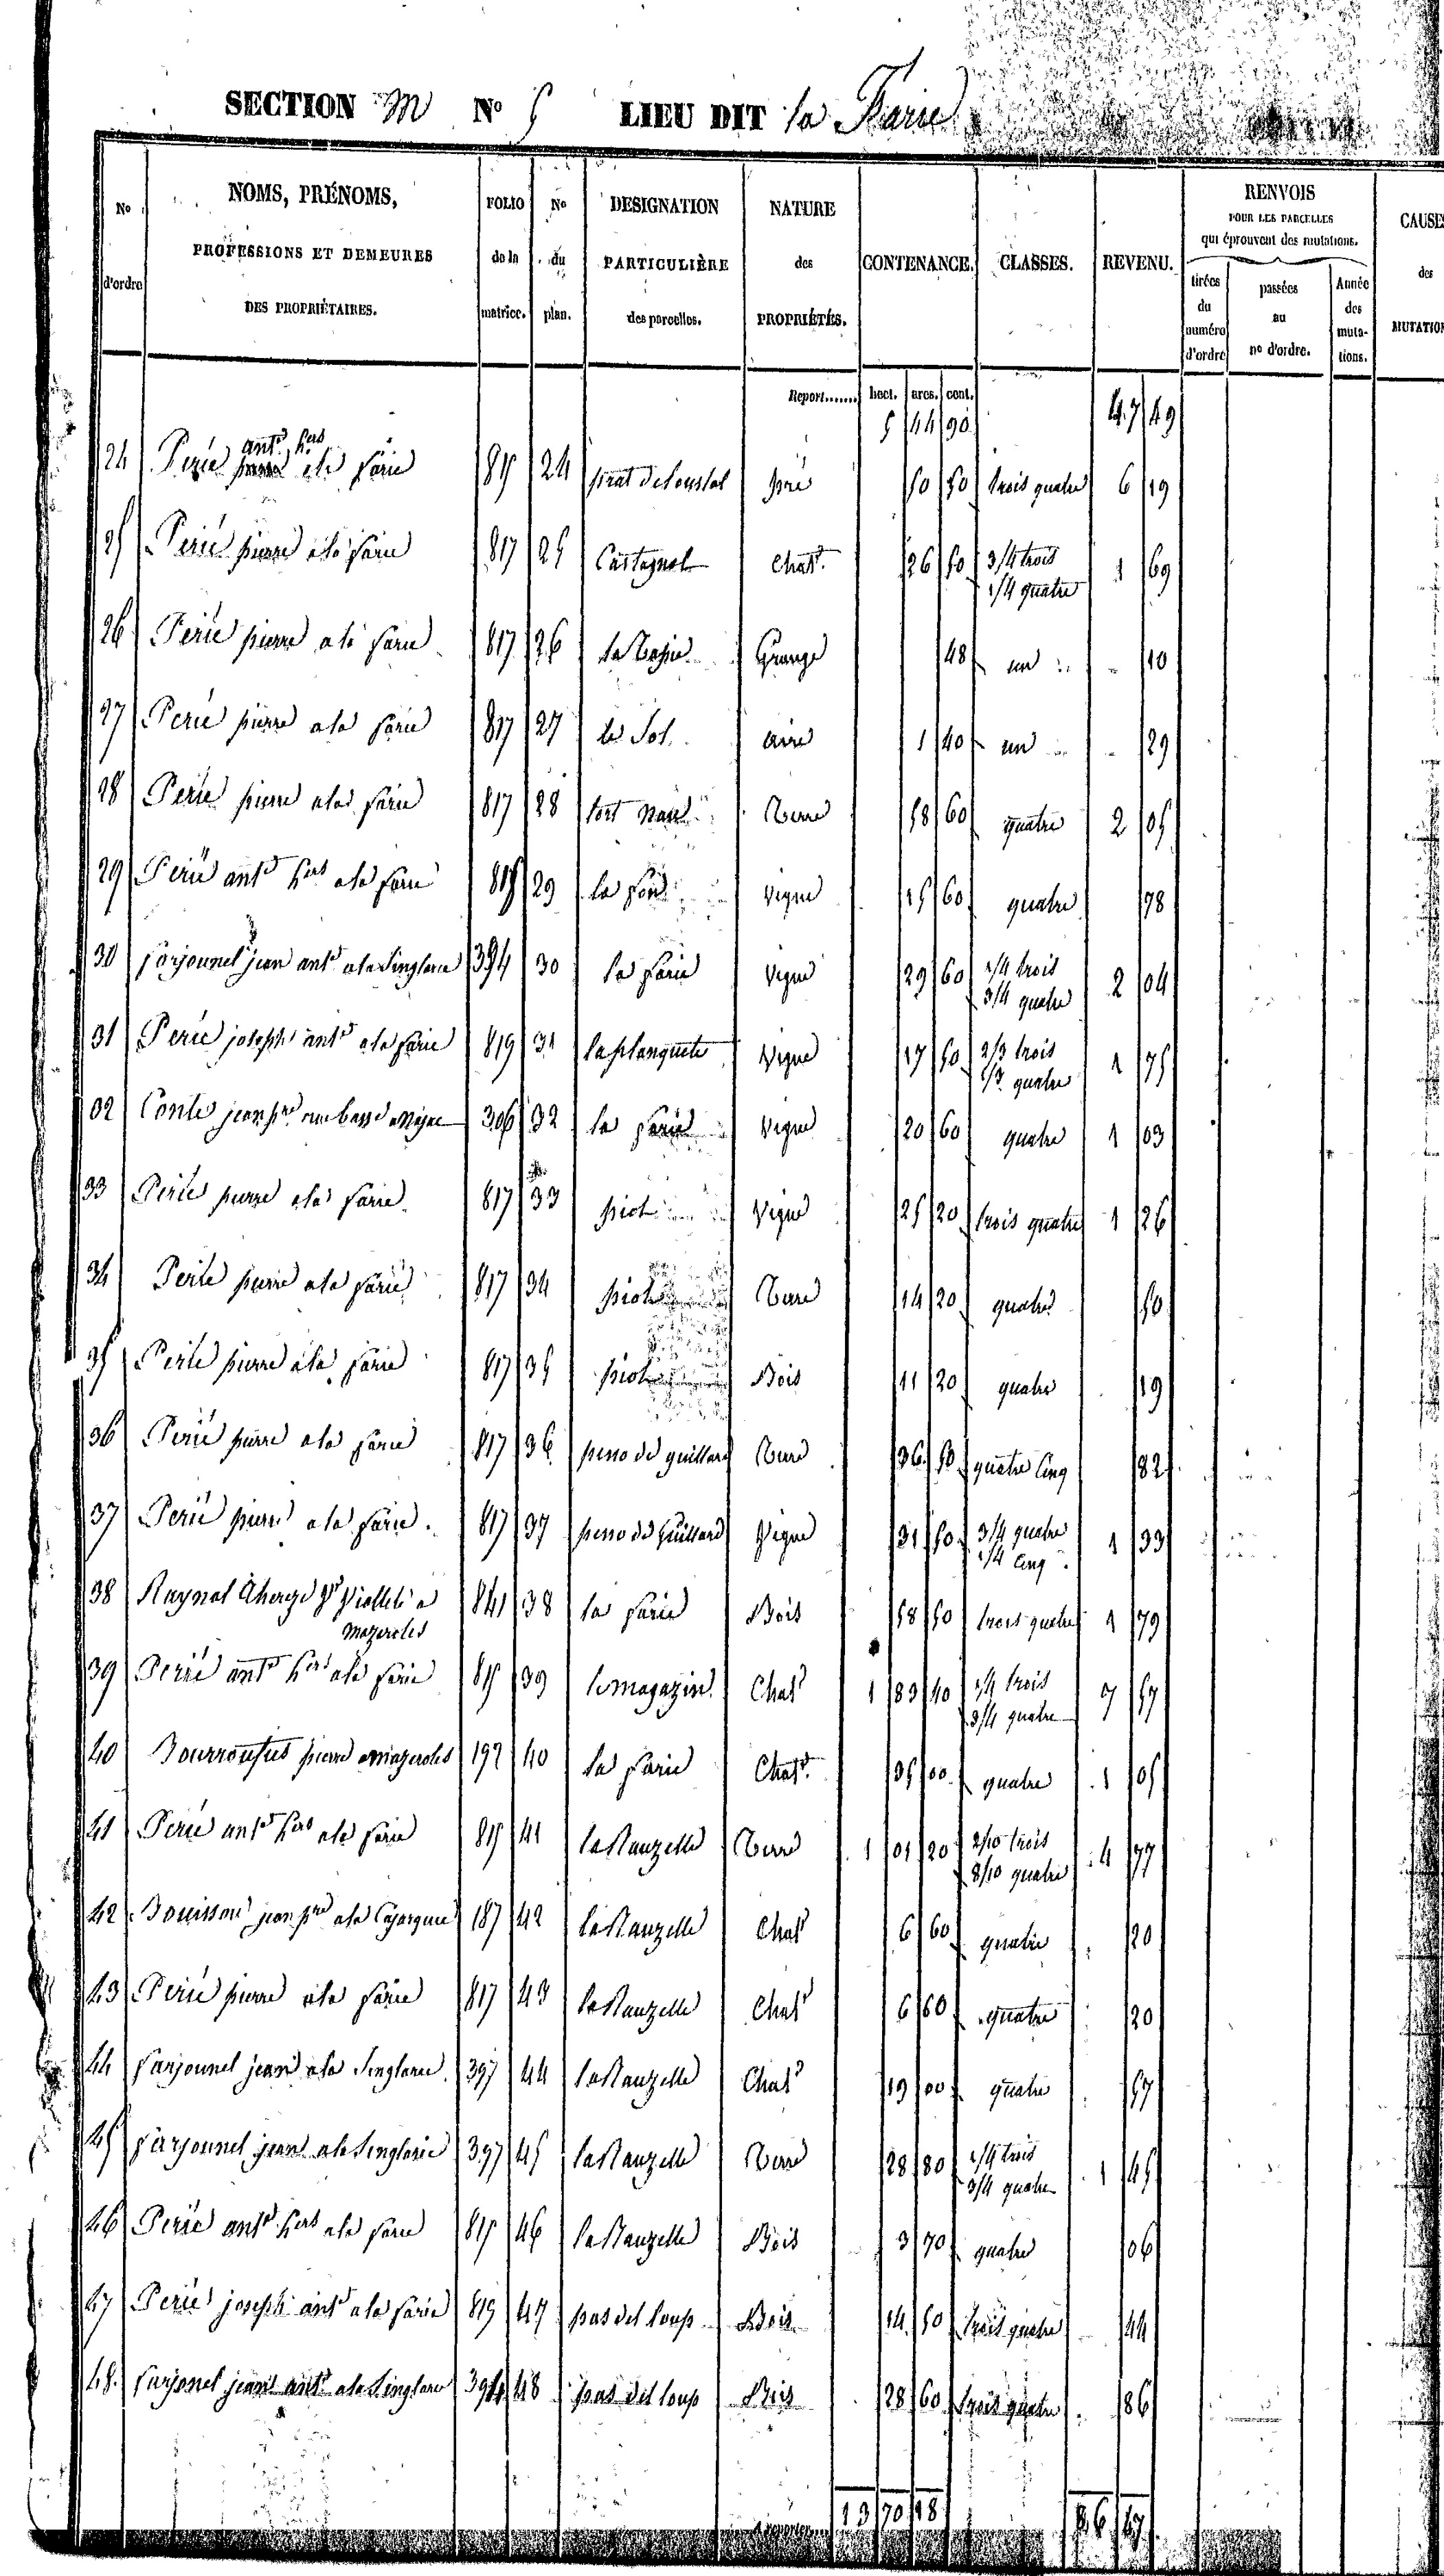 SECTION M No 5 LIEU DIT la Farie
No d'ordre
NOMS, PRÉNOMS, PROFESSIONS ET DEMEURES DES PROPRIÉTAIRES.
FOLIO de la matrice.
No du plan.
DESIGNATION PARTICULIÈRE des parcelles.
NATURE des PROPRIÉTÉS.
CONTENANCE.
CLASSES.
REVENU.
RENVOIS POUR LES PARCELLES qui éprouvent des mutations.
tirées du numéro d'ordre
passées au no d'ordre.
Année des mutations.
CAUSES des MUTATION
Report....... hect. ares. cent.
5 44 90 47 49
24 Perié antne hers a la farie 815 24 prat de loustal pré 50 50 trois quatre 6 19
25 Perié pierre a la farie 817 25 Castagnal Chatr 26 50 3/4 trois 1/4 quatre 1 69
26 Perié pierre a la farie 817 26 Grange 48 un 10
27 Perié pierre a la farie 817 27 le Sol aire 1 40 un 29
28 Perié pierre a la farie 817 28 tort Terre 58 60 quatre 2 05
29 Perié antne hers a la farie 815 29 la fon vigne 15 60 quatre 78
30 farjounel jean antne a la Singlarie 394 30 la farie vigne 29 60 1/4 trois 3/4 quatre 2 04
31 Perié joseph antne a la farie 819 31 la planquete vigne 17 50 2/3 trois 1/3 quatre 1 75
32 Conte jean pre 306 32 la farie vigne 20 60 quatre 1 03
33 Perié pierre a la farie 817 33 piot vigne 25 20 trois quatre 1 26
34 Perié pierre a la farie 817 34 piot Terre 14 20 quatre 50
35 Perié pierre a la farie 817 35 piot Bois 11 20 quatre 19
36 Perié pierre a la farie 817 36 de guillard Terre 36 50 quatre Cinq 82
37 Perié pierre a la farie 817 37 de guillard Vigne 31 50 3/4 quatre 1/4 Cinq 1 33
38 Raynal a mazeroles 841 38 la farie Bois 58 50 trois quatre 1 79
39 Perié antne hers a la farie 815 39 le magazin Chatr 1 83 40 1/4 trois 3/4 quatre 7 57
40 pierre a mazeroles 192 40 la farie Chatr 35 00 quatre 1 05
41 Perié antne hers a la farie 815 41 la Rauzelle Terre 1 01 20 2/10 trois 8/10 quatre 4 77
42 Bouisson jean pre a la Cajarquie 187 42 la Rauzelle Chatr 6 60 quatre 20
43 Perié pierre a la farie 817 43 la Rauzelle Chatr 6 60 quatre 20
44 farjounel jean a la Singlarie 397 44 la Rauzelle Chatr 19 00 quatre 57
45 farjounel jean a la Singlarie 397 45 la Rauzelle Terre 28 80 1/4 trois 3/4 quatre 1 45
46 Perié antne hers a la farie 815 46 la Rauzelle Bois 3 70 quatre 06
47 Perié joseph antne a la farie 819 47 pas del loup Bois 14 50 trois quatre 44
48 farjonel jean antne a la Singlarie 394 48 pas del loup Bois 28 60 trois quatre 86
13 70 18 86 47